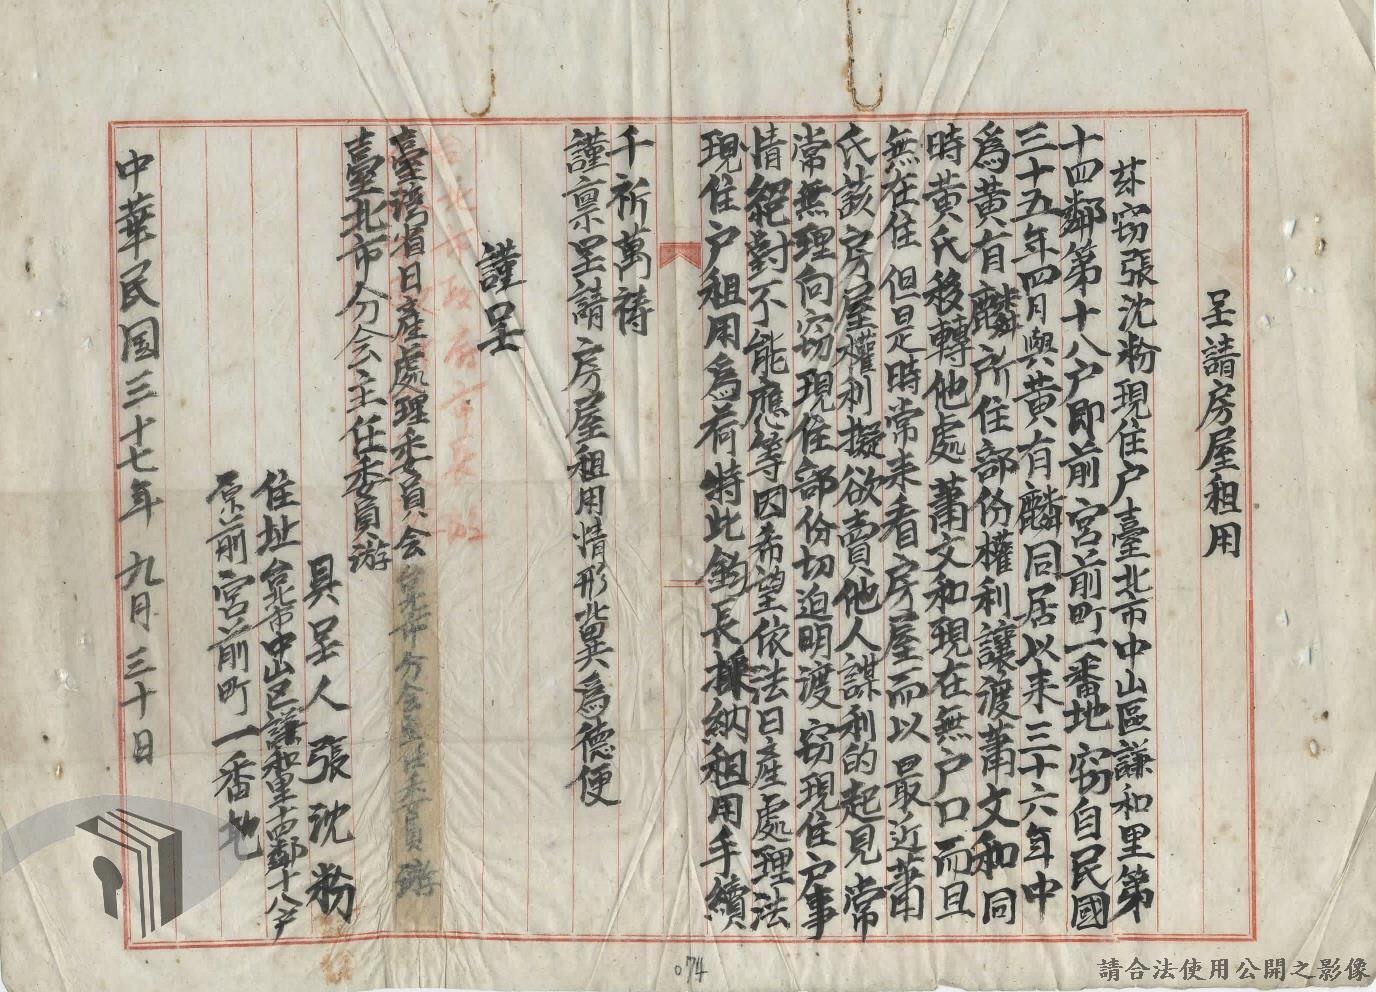 呈請房屋租用
茲窃張沈粉現住户臺北市中山區謙和里第
十四鄰第十八户即前宮前町一番地窃自民國
三十五年四月與黄有麟同居以来三十六年中
為黄有麟所住部份權利讓渡蕭文和同
時黄氏移轉他處蕭文和現在無户口而且
無在住但是時常来看房屋而以最近蕭
氏該房屋權利擬欲賣他人謀利的起見常
常無理向窃現住部份切迫明渡窃現住户事
情絕對不能應等因希望依法日產處理法
現住户租用為荷特此鈞長採納租用手續
千祈萬禱
謹稟呈請房屋租用情形北異為德便
謹呈
臺灣省日產處理委員會台北市分会主任委員游
臺北市分会主任委員游
具呈人張沈粉
住址台北市中山区謙和里十四鄰十八户
原前宮前町一番地
中華民国三十七年九月三十日
074
請合法使用公開之影像